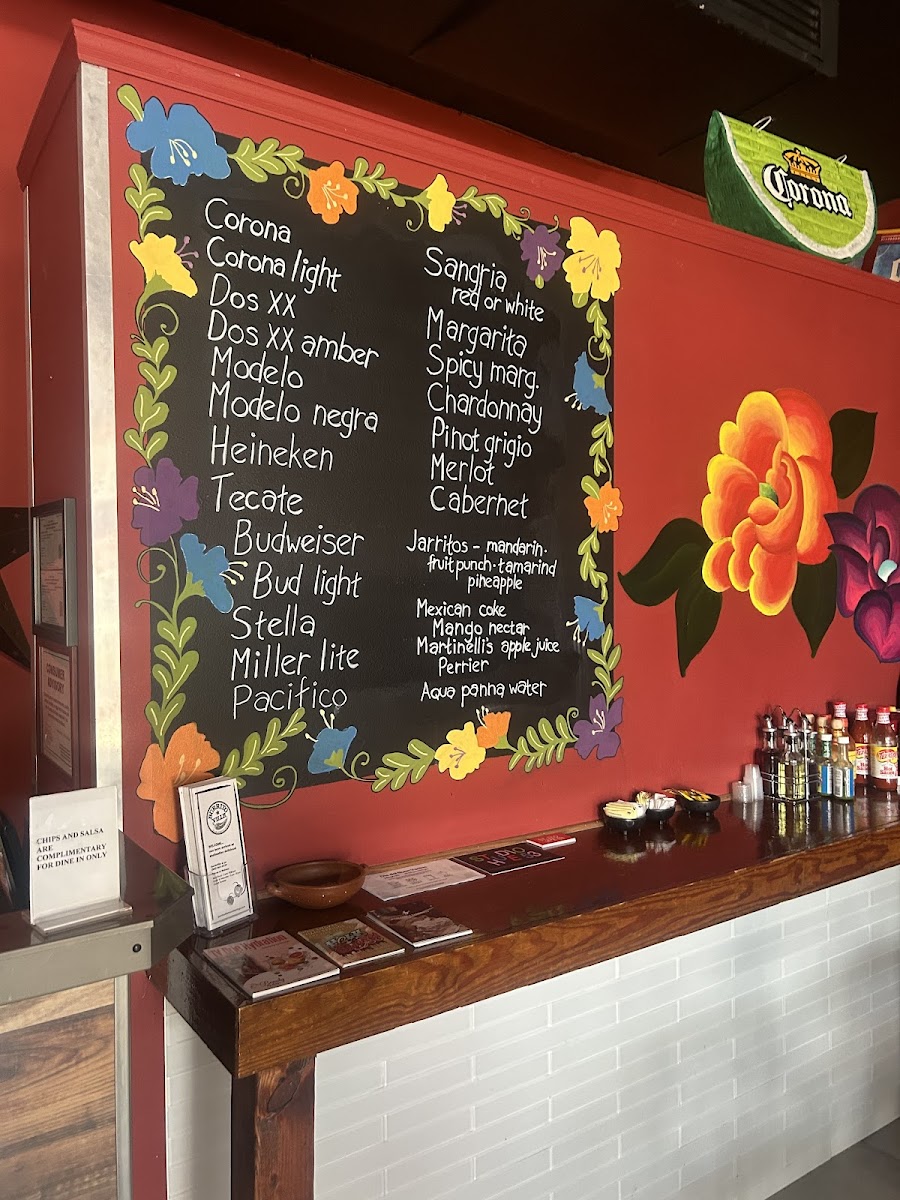 Corona
Corona light
Dos XX
Dos XX amber
Modelo
Modelo negra
Heineken
Tecate
Budweiser
Bud light
Stella
Miller lite
Pacifico
Sangria
red or white
Margarita
Spicy marg.
Chardonnay
Pinot grigio
Merlot
Cabernet
Jarritos - mandarin.
fruit punch. tamarind
pineapple
Mexican coke
Mango nectar
Martinelli's apple juice
Perrier
Aqua panna water
Corona
CHIPS AND SALSA
ARE
COMPLIMENTARY
FOR DINE IN ONLY
CONSUMER
ADVISORY